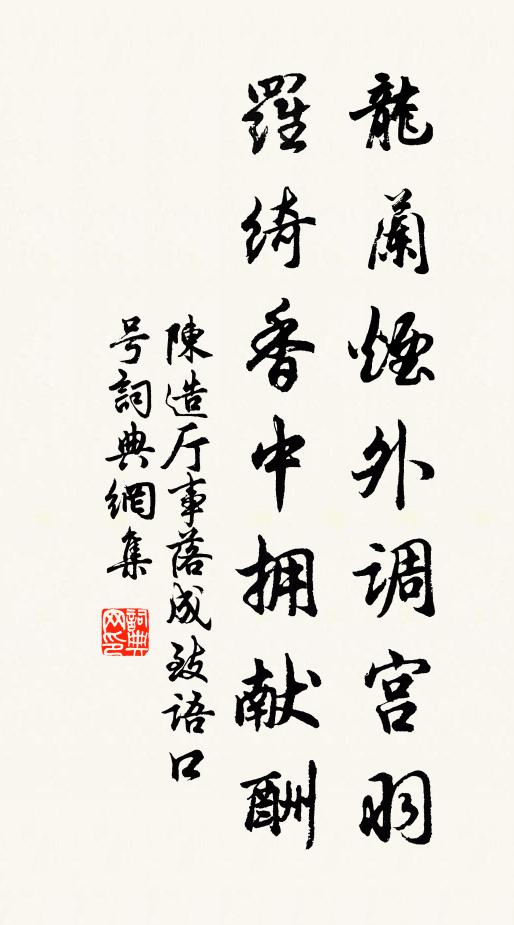 龍蘭煙外调宫羽
羅绮香中拥献酬
陳造厅事落成致语口
号詞典網集
詞典网印